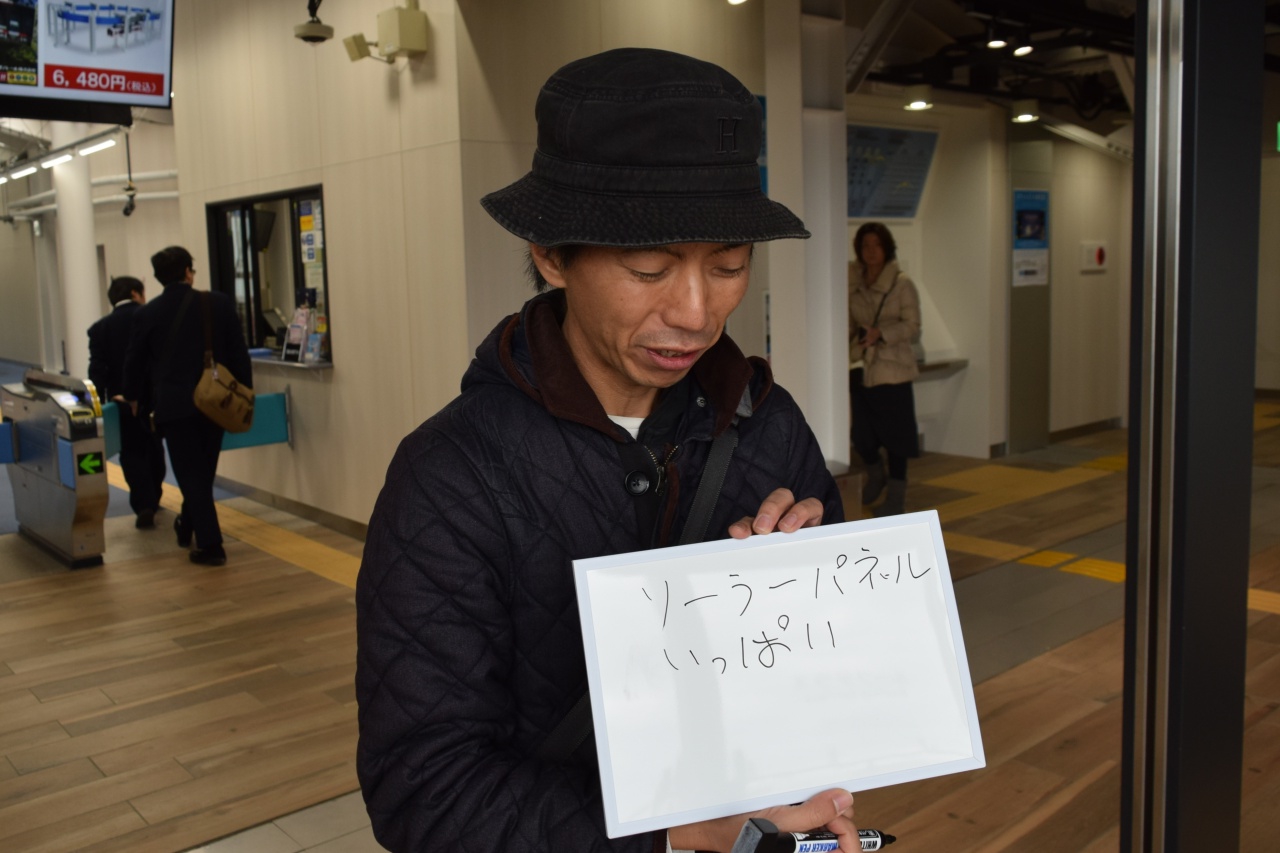 6,480円(税込)
H
ソーラーパネル
いっぱい
WHITE
MARKER PEN